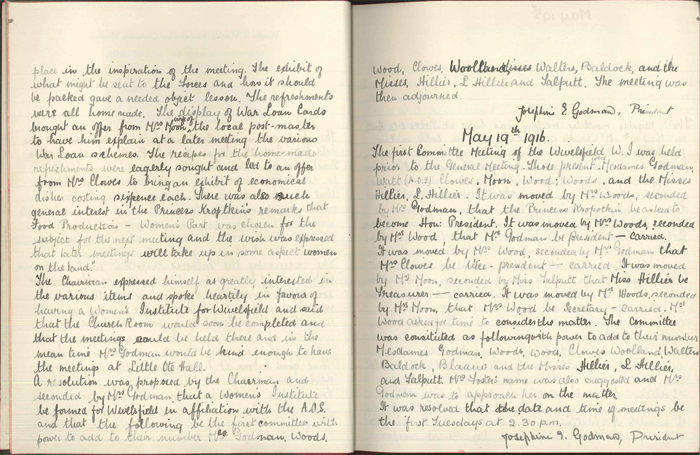 place in the inspiration of the meeting. The exhibit of
what might be sent to the Forces and how it should
be packed gave a needed object lesson. The refreshments
were all home made. The display of War Loan Cards
brought an offer from Mrs Moon, wife of the local post-master
to have him explain at a later meeting the various
War Loan schemes. The recipes for the home-made
refreshments were eagerly sought and led to an offer
from Mrs Clowes to bring an exhibit of economical
dishes costing sixpence each. There was also such
general interest in the Princess Kropotkin's remarks that
Food Production - Women's Part was chosen for the
subject for the next meeting and the wish was expressed
that later meetings will take up in some aspect women
on the land."
The Chairman expressed himself as greatly interested in
the various items and spoke heartily in favour of
having a Women's Institute for Wivelsfield and said
that the Church Room would soon be completed and
that the meetings could be held there and in the
mean time Mrs Godman would be kind enough to have
the meetings at Little Ote Hall.
A resolution was proposed by the Chairman and
seconded by Mrs Godman that a Women's Institute
be formed for Wivelsfield in affiliation with the A.O.S.
and that the following be the first committee with
power to add to their number Mes Godman, Woods,
Wood, Clowes, Woolland, Misses Walters, Baldock, and the
Misses, Hillier, L Hillier and Salputt. The meeting was
then adjourned.
Josephine E Godman, President
May 19th 1916.
The first Committee Meeting of the Wivelsfield W. I was held
prior to the General Meeting. Those present were Mesdames Godman,
Watt (A.O.S) Clowes, Moon, Wood, Woods, and the Misses
Hillier, L. Hillier. It was moved by Mrs Woods, seconded
by Mrs Godman, that the Princess Kropotkin be asked to
become Hon: President. It was moved by Mrs Woods, seconded
by Mrs Wood, that Mrs Godman be president - carried.
It was moved by Mrs Wood, seconded by Mrs Godman that
Mrs Clowes be Vice-president - carried. It was moved
by Mrs Moon, seconded by Miss Salputt that Miss Hillier be
Treasurer - carried. It was moved by Mrs Woods, seconded
by Mrs Moon, that Mrs Wood be Secretary - carried. Mrs
Wood asked for time to consider the matter. The Committee
was constituted as following with power to add to their number
Mesdames Godman, Woods, Wood, Clowes Woolland, Walters
Baldock, Blaauw and the Misses Hillier, L Hillier,
and Salputt Mrs Foster's name was also suggested and Mrs
Godman was to approach her on the matter.
It was resolved that the date and time of meetings be
the first Tuesdays at 2.30 p.m.
Josephine E. Godman, President